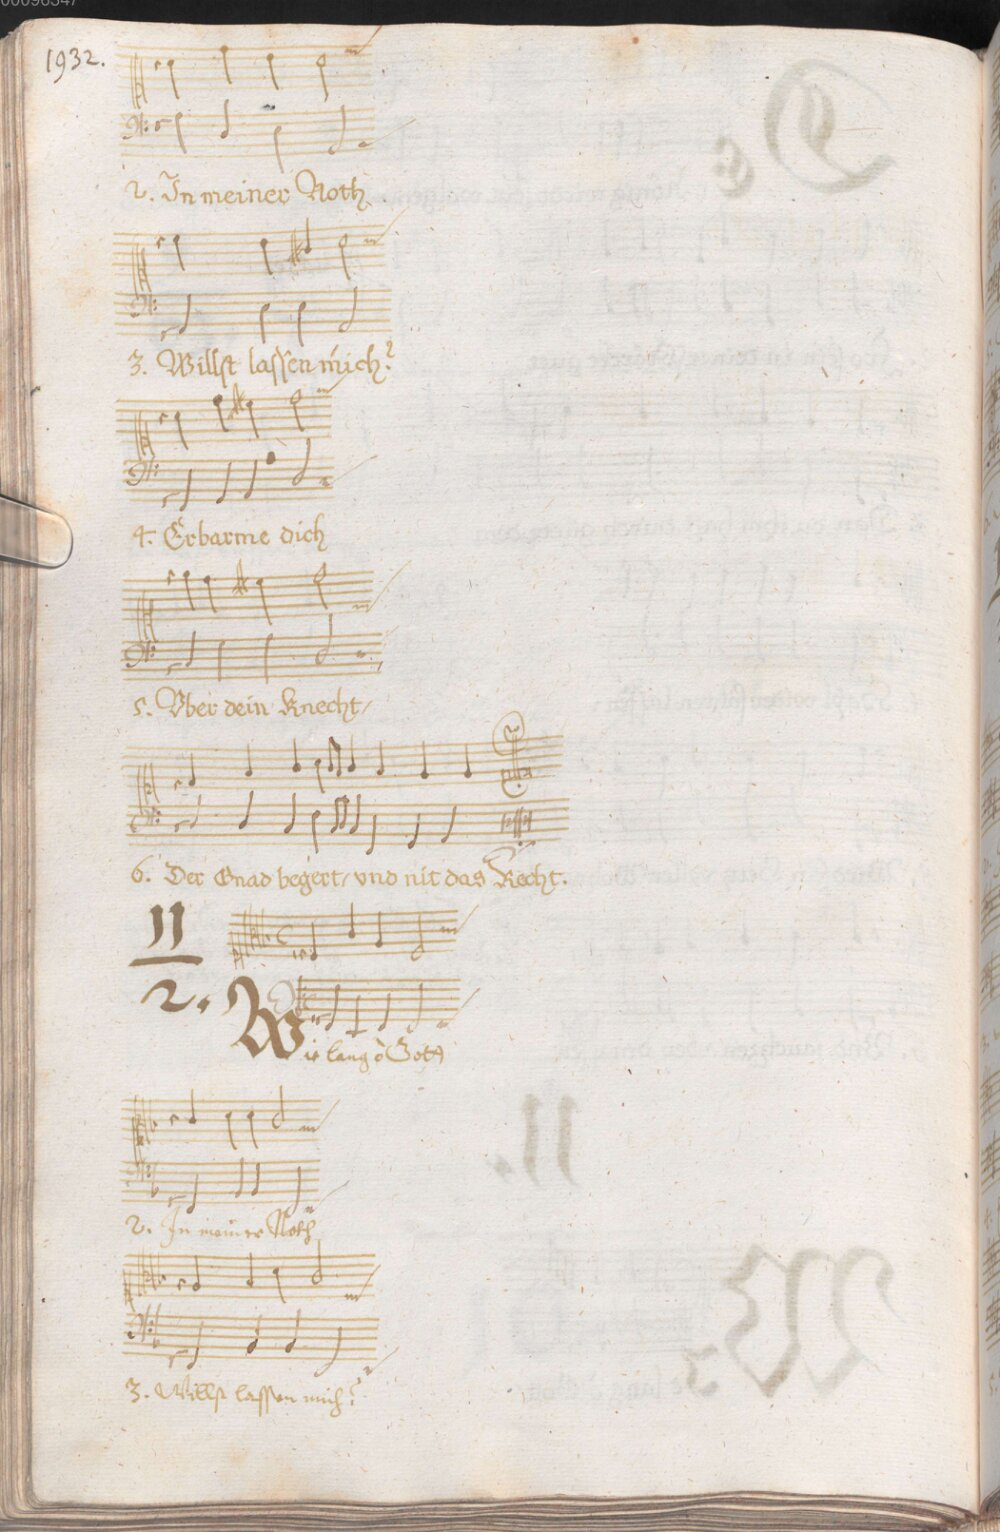 00096347
1932.
2. In meiner Noth
3. Willst lassen mich?
4. Erbarme dich
5. Vber dein Knecht/
6. Der Gnad begert/ vnd nit das Recht.
11
2. Wie lang ô Gott
2. In meiner Noth
3. Willst lassen mich?